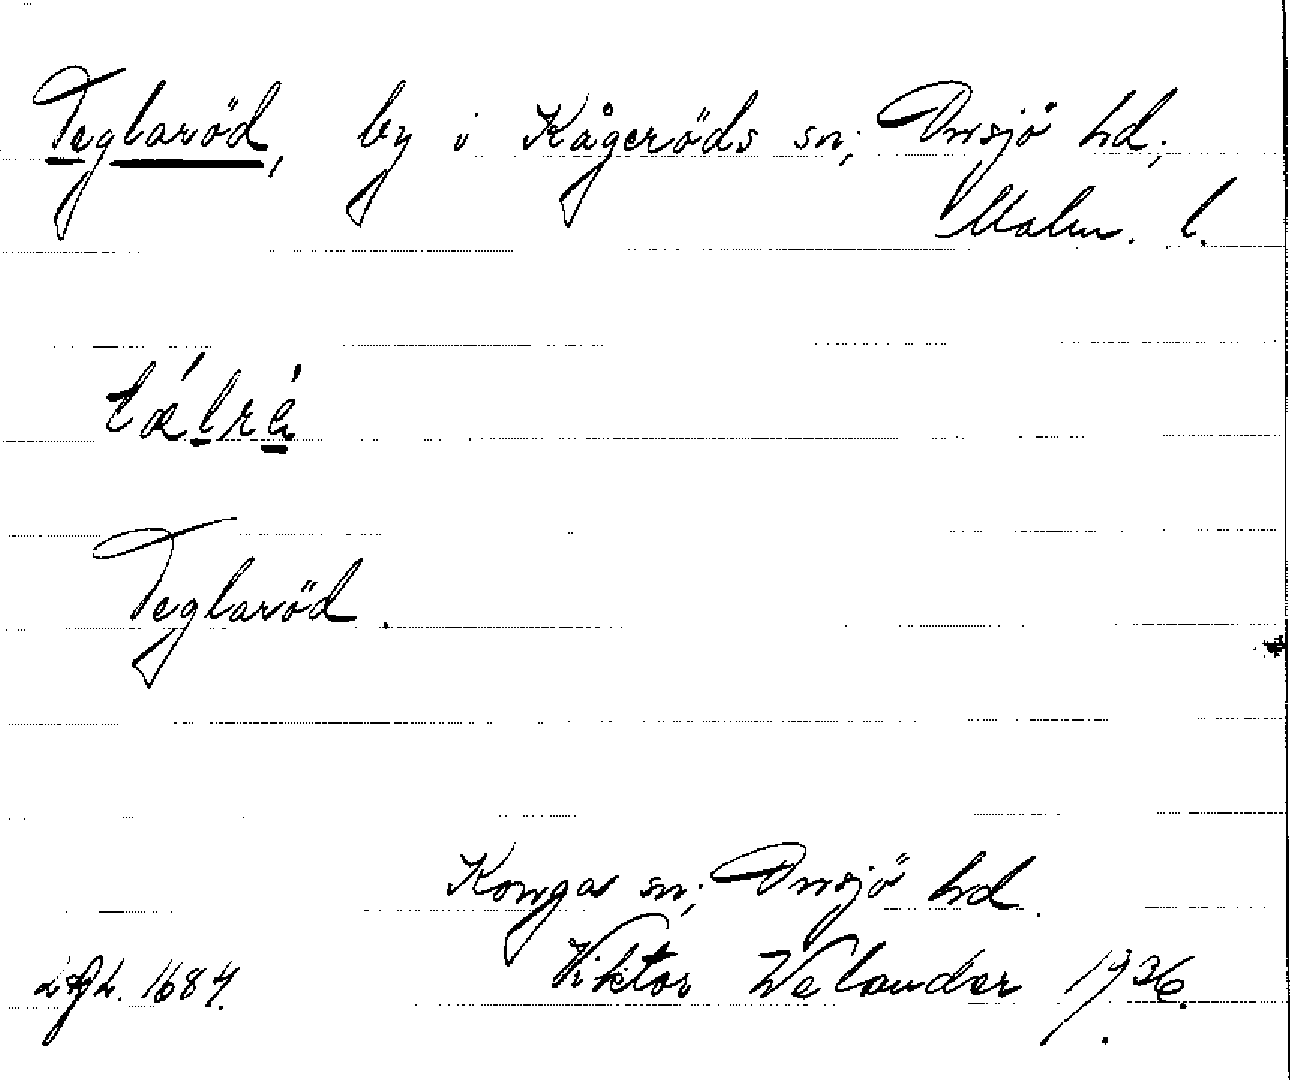 Teglaröd, by i Kågeröds sn; Onsjö hd;
Malm. l.
Teglaröd.
Konga sn; Onsjö hd.
Viktor Welander 1936.
1684.